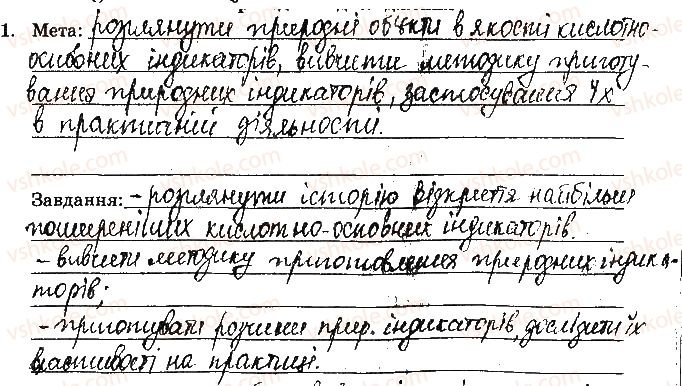 1. Мета: розглянути природні обєкти в якості кислотно-
основних індикаторів, вивчити методику приготу-
вання природних індикаторів, застосування їх
в практичній діяльності.
Завдання: – розглянути історію відкриття найбільш
поширеніших кислотно-основних індикаторів.
– вивчити методику приготовлення природних індика-
торів;
– приготувати розчини прир. індикаторів, дослідити їх
властивості на практиці.